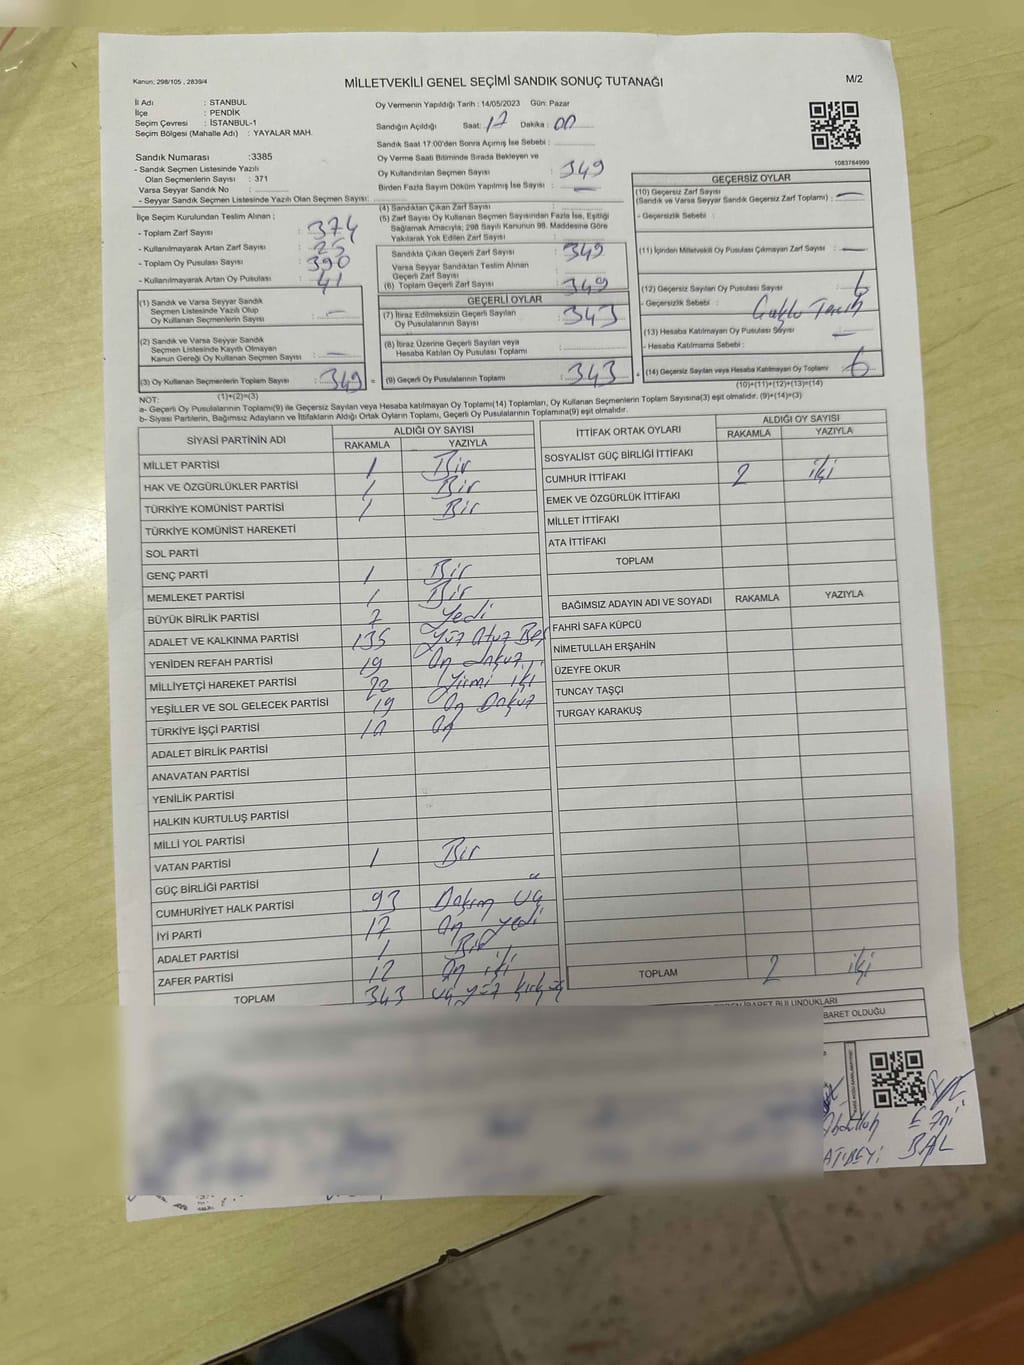 Kanun; 298/105 , 2839/4
MİLLETVEKİLİ GENEL SEÇİMİ SANDIK SONUÇ TUTANAĞI
M/2
İl Adı : STANBUL
İlçe : PENDİK
Seçim Çevresi : İSTANBUL-1
Seçim Bölgesi (Mahalle Adı) : YAYALAR MAH.
Sandık Numarası :3385
- Sandık Seçmen Listesinde Yazılı
Olan Seçmenlerin Sayısı : 371
Varsa Seyyar Sandık No :
- Seyyar Sandık Seçmen Listesinde Yazılı Olan Seçmen Sayısı:
İlçe Seçim Kurulundan Teslim Alınan ;
- Toplam Zarf Sayısı : 374
- Kullanılmayarak Artan Zarf Sayısı : 25
- Toplam Oy Pusulası : 390
- Kullanılmayarak Artan Oy Pusulası : 41
(1) Sandık ve Varsa Seyyar Sandık
Seçmen Listesinde Yazılı Olup
Oy Kullanan Seçmenlerin Sayısı : —
(2) Sandık ve Varsa Seyyar Sandık
Seçmen Listesinde Kayıtlı Olmayan
Kanun Gereği Oy Kullanan Seçmen Sayısı : —
(3) Oy Kullanan Seçmenlerin Toplam Sayısı : 349 =
(1)+(2)=(3)
Oy Vermenin Yapıldığı Tarih : 14/05/2023 Gün: Pazar
Sandığın Açıldığı Saat: 17 Dakika : 00
Sandık Saat 17:00'den Sonra Açılmış İse Sebebi :
Oy Verme Saati Bitiminde Sırada Bekleyen ve
Oy Kullandırılan Seçmen Sayısı : 349
Birden Fazla Sayım Döküm Yapılmış İse Sayısı : —
(4) Sandıktan Çıkan Zarf Sayısı :
(5) Zarf Sayısı Oy Kullanan Seçmen Sayısından Fazla İse, Eşitliği
Sağlamak Amacıyla; 298 Sayılı Kanunun 98. Maddesine Göre
Yakılarak Yok Edilen Zarf Sayısı :
Sandıkta Çıkan Geçerli Zarf Sayısı : 349
Varsa Seyyar Sandıktan Teslim Alınan
Geçerli Zarf Sayısı :
(6) Toplam Geçerli Zarf Sayısı : 349
GEÇERLİ OYLAR
(7) İtiraz Edilmeksizin Geçerli Sayılan
Oy Pusulalarının Sayısı : 343
(8) İtiraz Üzerine Geçerli Sayılan veya
Hesaba Katılan Oy Pusulası Toplamı :
(9) Geçerli Oy Pusulalarının Toplamı : 343 +
1083784999
GEÇERSİZ OYLAR
(10) Geçersiz Zarf Sayısı
(Sandık ve Varsa Seyyar Sandık Geçersiz Zarf Toplamı) : —
- Geçersizlik Sebebi :
(11) İçinden Milletvekili Oy Pusulası Çıkmayan Zarf Sayısı : —
(12) Geçersiz Sayılan Oy Pusulası Sayısı : 6
- Geçersizlik Sebebi :
(13) Hesaba Katılmayan Oy Pusulası Sayısı : —
- Hesaba Katılmama Sebebi :
(14) Geçersiz Sayılan veya Hesaba Katılmayan Oy Toplamı : 6
(10)+(11)+(12)+(13)=(14)
NOT:
a- Geçerli Oy Pusulalarının Toplamı(9) ile Geçersiz Sayılan veya Hesaba Katılmayan Oy Toplamı(14) Toplamları, Oy Kullanan Seçmenlerin Toplam Sayısına(3) eşit olmalıdır. (9)+(14)=(3)
b- Siyasi Partilerin, Bağımsız Adayların ve İttifakların Aldığı Ortak Oyların Toplamı, Geçerli Oy Pusulalarının Toplamına(9) eşit olmalıdır.
SİYASİ PARTİNİN ADI ALDIĞI OY SAYISI
RAKAMLA YAZIYLA
MİLLET PARTİSİ 1 Bir
HAK VE ÖZGÜRLÜKLER PARTİSİ 1 Bir
TÜRKİYE KOMÜNİST PARTİSİ 1 Bir
TÜRKİYE KOMÜNİST HAREKETİ
SOL PARTİ
GENÇ PARTİ 1 Bir
MEMLEKET PARTİSİ 1 Bir
BÜYÜK BİRLİK PARTİSİ 7 yedi
ADALET VE KALKINMA PARTİSİ 135 Yüz Otuz Beş
YENİDEN REFAH PARTİSİ 19 On dokuz
MİLLİYETÇİ HAREKET PARTİSİ 22 Yirmi iki
YEŞİLLER VE SOL GELECEK PARTİSİ 19 On Dokuz
TÜRKİYE İŞÇİ PARTİSİ 10 On
ADALET BİRLİK PARTİSİ
ANAVATAN PARTİSİ
YENİLİK PARTİSİ
HALKIN KURTULUŞ PARTİSİ
MİLLİ YOL PARTİSİ
VATAN PARTİSİ 1 Bir
GÜÇ BİRLİĞİ PARTİSİ
CUMHURİYET HALK PARTİSİ 93 Doksan üç
İYİ PARTİ 17 On yedi
ADALET PARTİSİ 1 Bir
ZAFER PARTİSİ 12 On iki
TOPLAM 343 üç yüz kırk üç
İTTİFAK ORTAK OYLARI ALDIĞI OY SAYISI
RAKAMLA YAZIYLA
SOSYALİST GÜÇ BİRLİĞİ İTTİFAKI
CUMHUR İTTİFAKI 2 iki
EMEK VE ÖZGÜRLÜK İTTİFAKI
MİLLET İTTİFAKI
ATA İTTİFAKI
TOPLAM
BAĞIMSIZ ADAYIN ADI VE SOYADI RAKAMLA YAZIYLA
FAHRİ SAFA KÜPCÜ
NİMETULLAH ERŞAHİN
ÜZEYFE OKUR
TUNCAY TAŞÇI
TURGAY KARAKUŞ
TOPLAM 2 iki
İBARET BULUNDUKLARI
BARET OLDUĞU
BAL